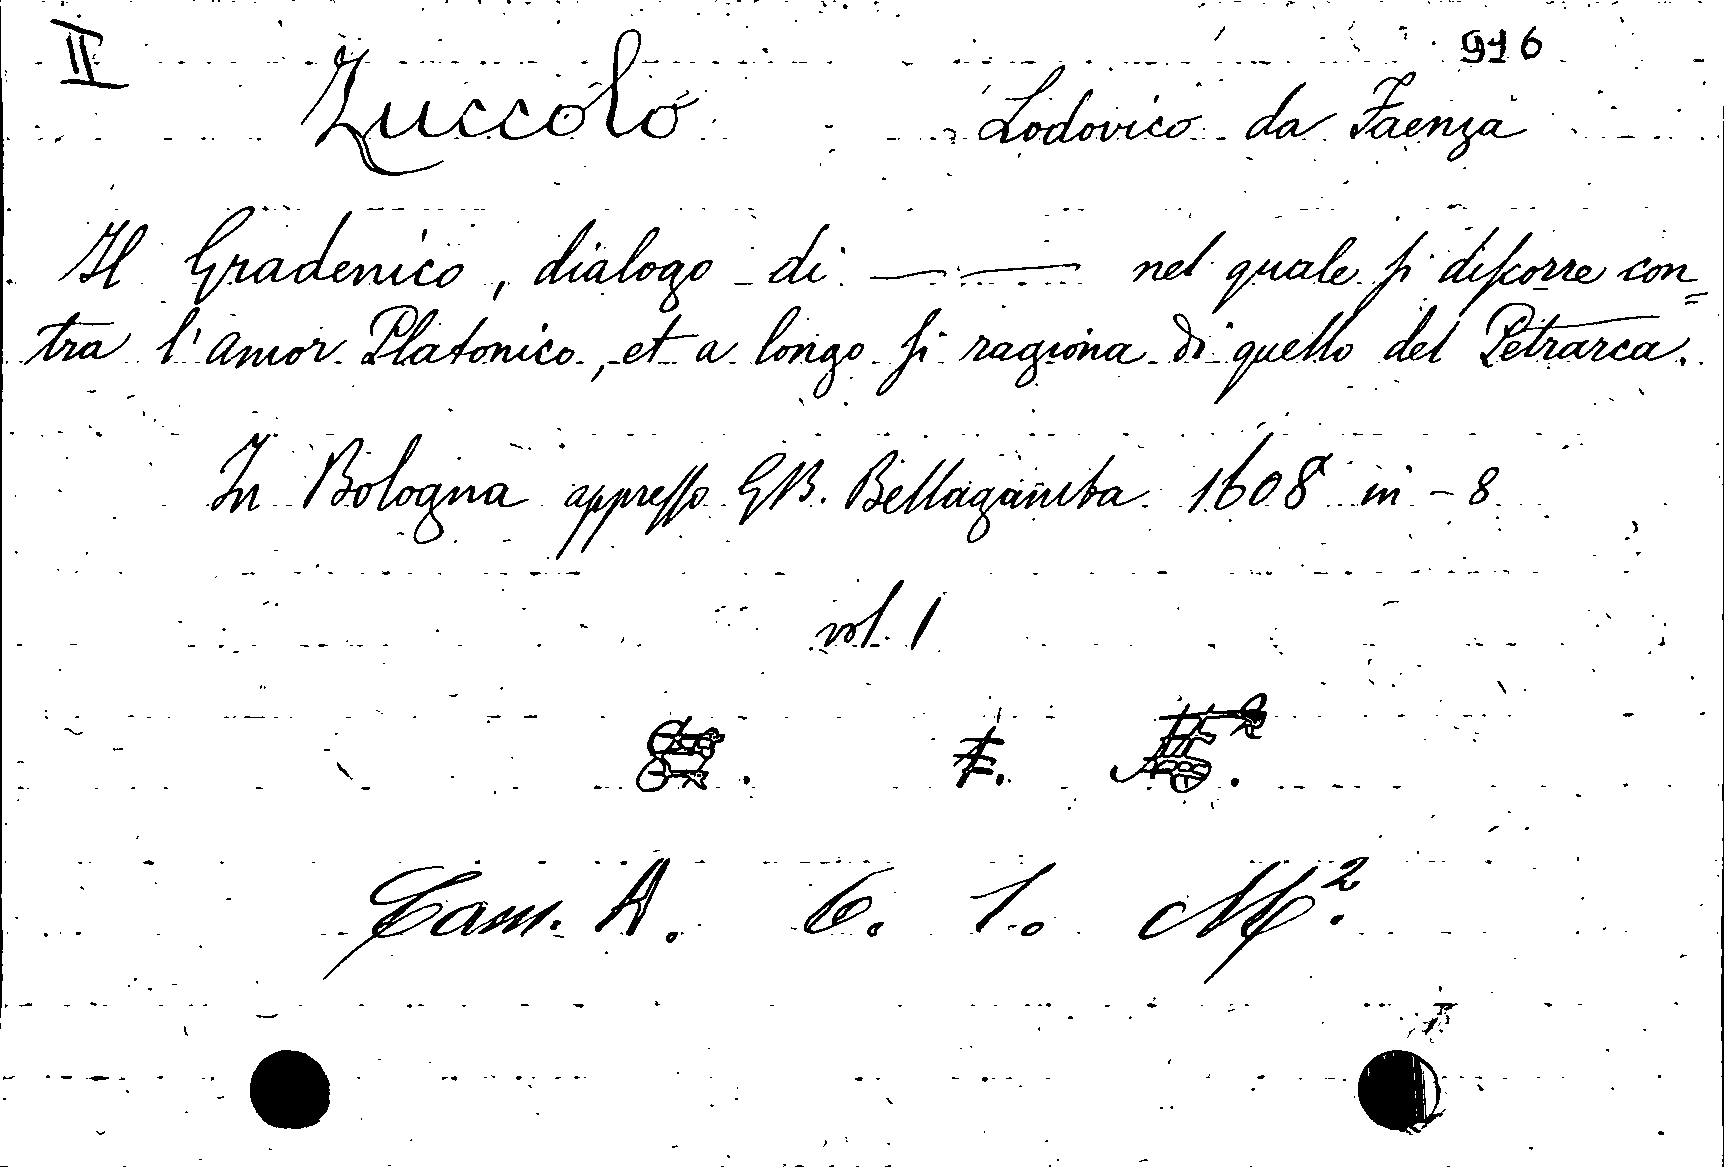 II 916
Zuccolo Lodovico da Faenza
Il Gradenico, dialogo di —— nel quale si discorre con=
tra l'amor Platonico, et a longo si ragiona di quello del Petrarca.
In Bologna appresso GB. Bellagamba 1608 in-8
vol. 1
Cam. A. 6. 1. M².